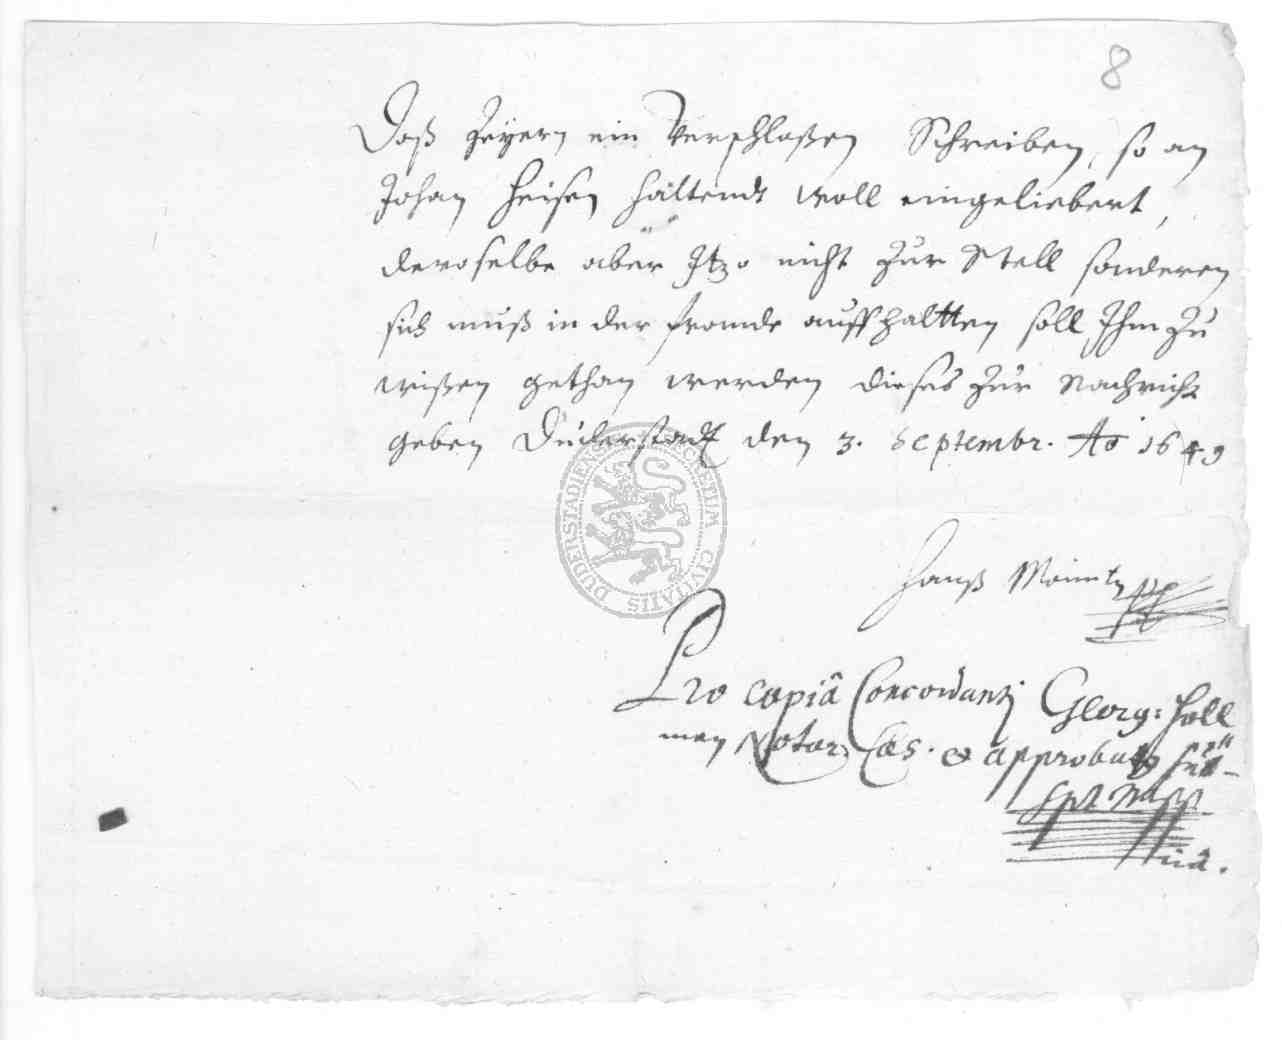 8
Daß Zeyern ein Verschloßen Schreiben, so an
Johan Heisen haltendt woll eingeliebert,
deroselbe aber Itzo nicht zur Stell sonderen
sich muß in der fromde auffhaltten soll Ihm zu
wißen gethan werden dieses zur Nachricht
geben Duderstadt den 3. Septembr. Ao 1649
Hanß
Pro copiâ Concordanti Georg: Holl
man Notar. Caes. &
DUDERSTADIENSIS SECRETUM CIVITATIS